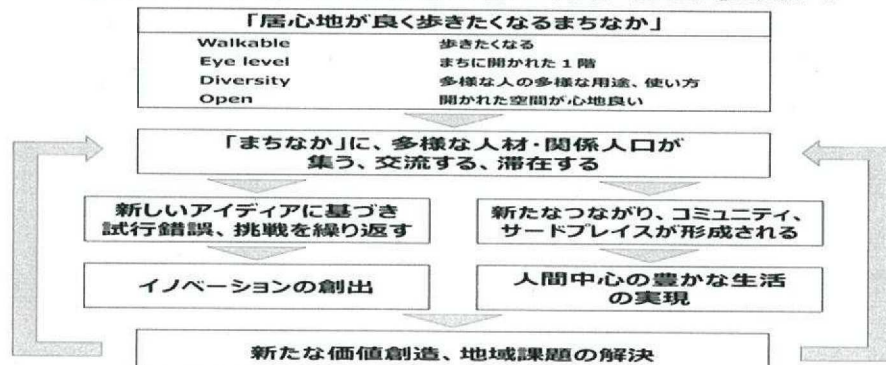 「居心地が良く歩きたくなるまちなか」
Walkable 歩きたくなる
Eye level まちに開かれた1階
Diversity 多様な人の多様な用途、使い方
Open 開かれた空間が心地良い
「まちなか」に、多様な人材・関係人口が
集う、交流する、滞在する
新しいアイディアに基づき
試行錯誤、挑戦を繰り返す
新たなつながり、コミュニティ、
サードプレイスが形成される
イノベーションの創出
人間中心の豊かな生活
の実現
新たな価値創造、地域課題の解決